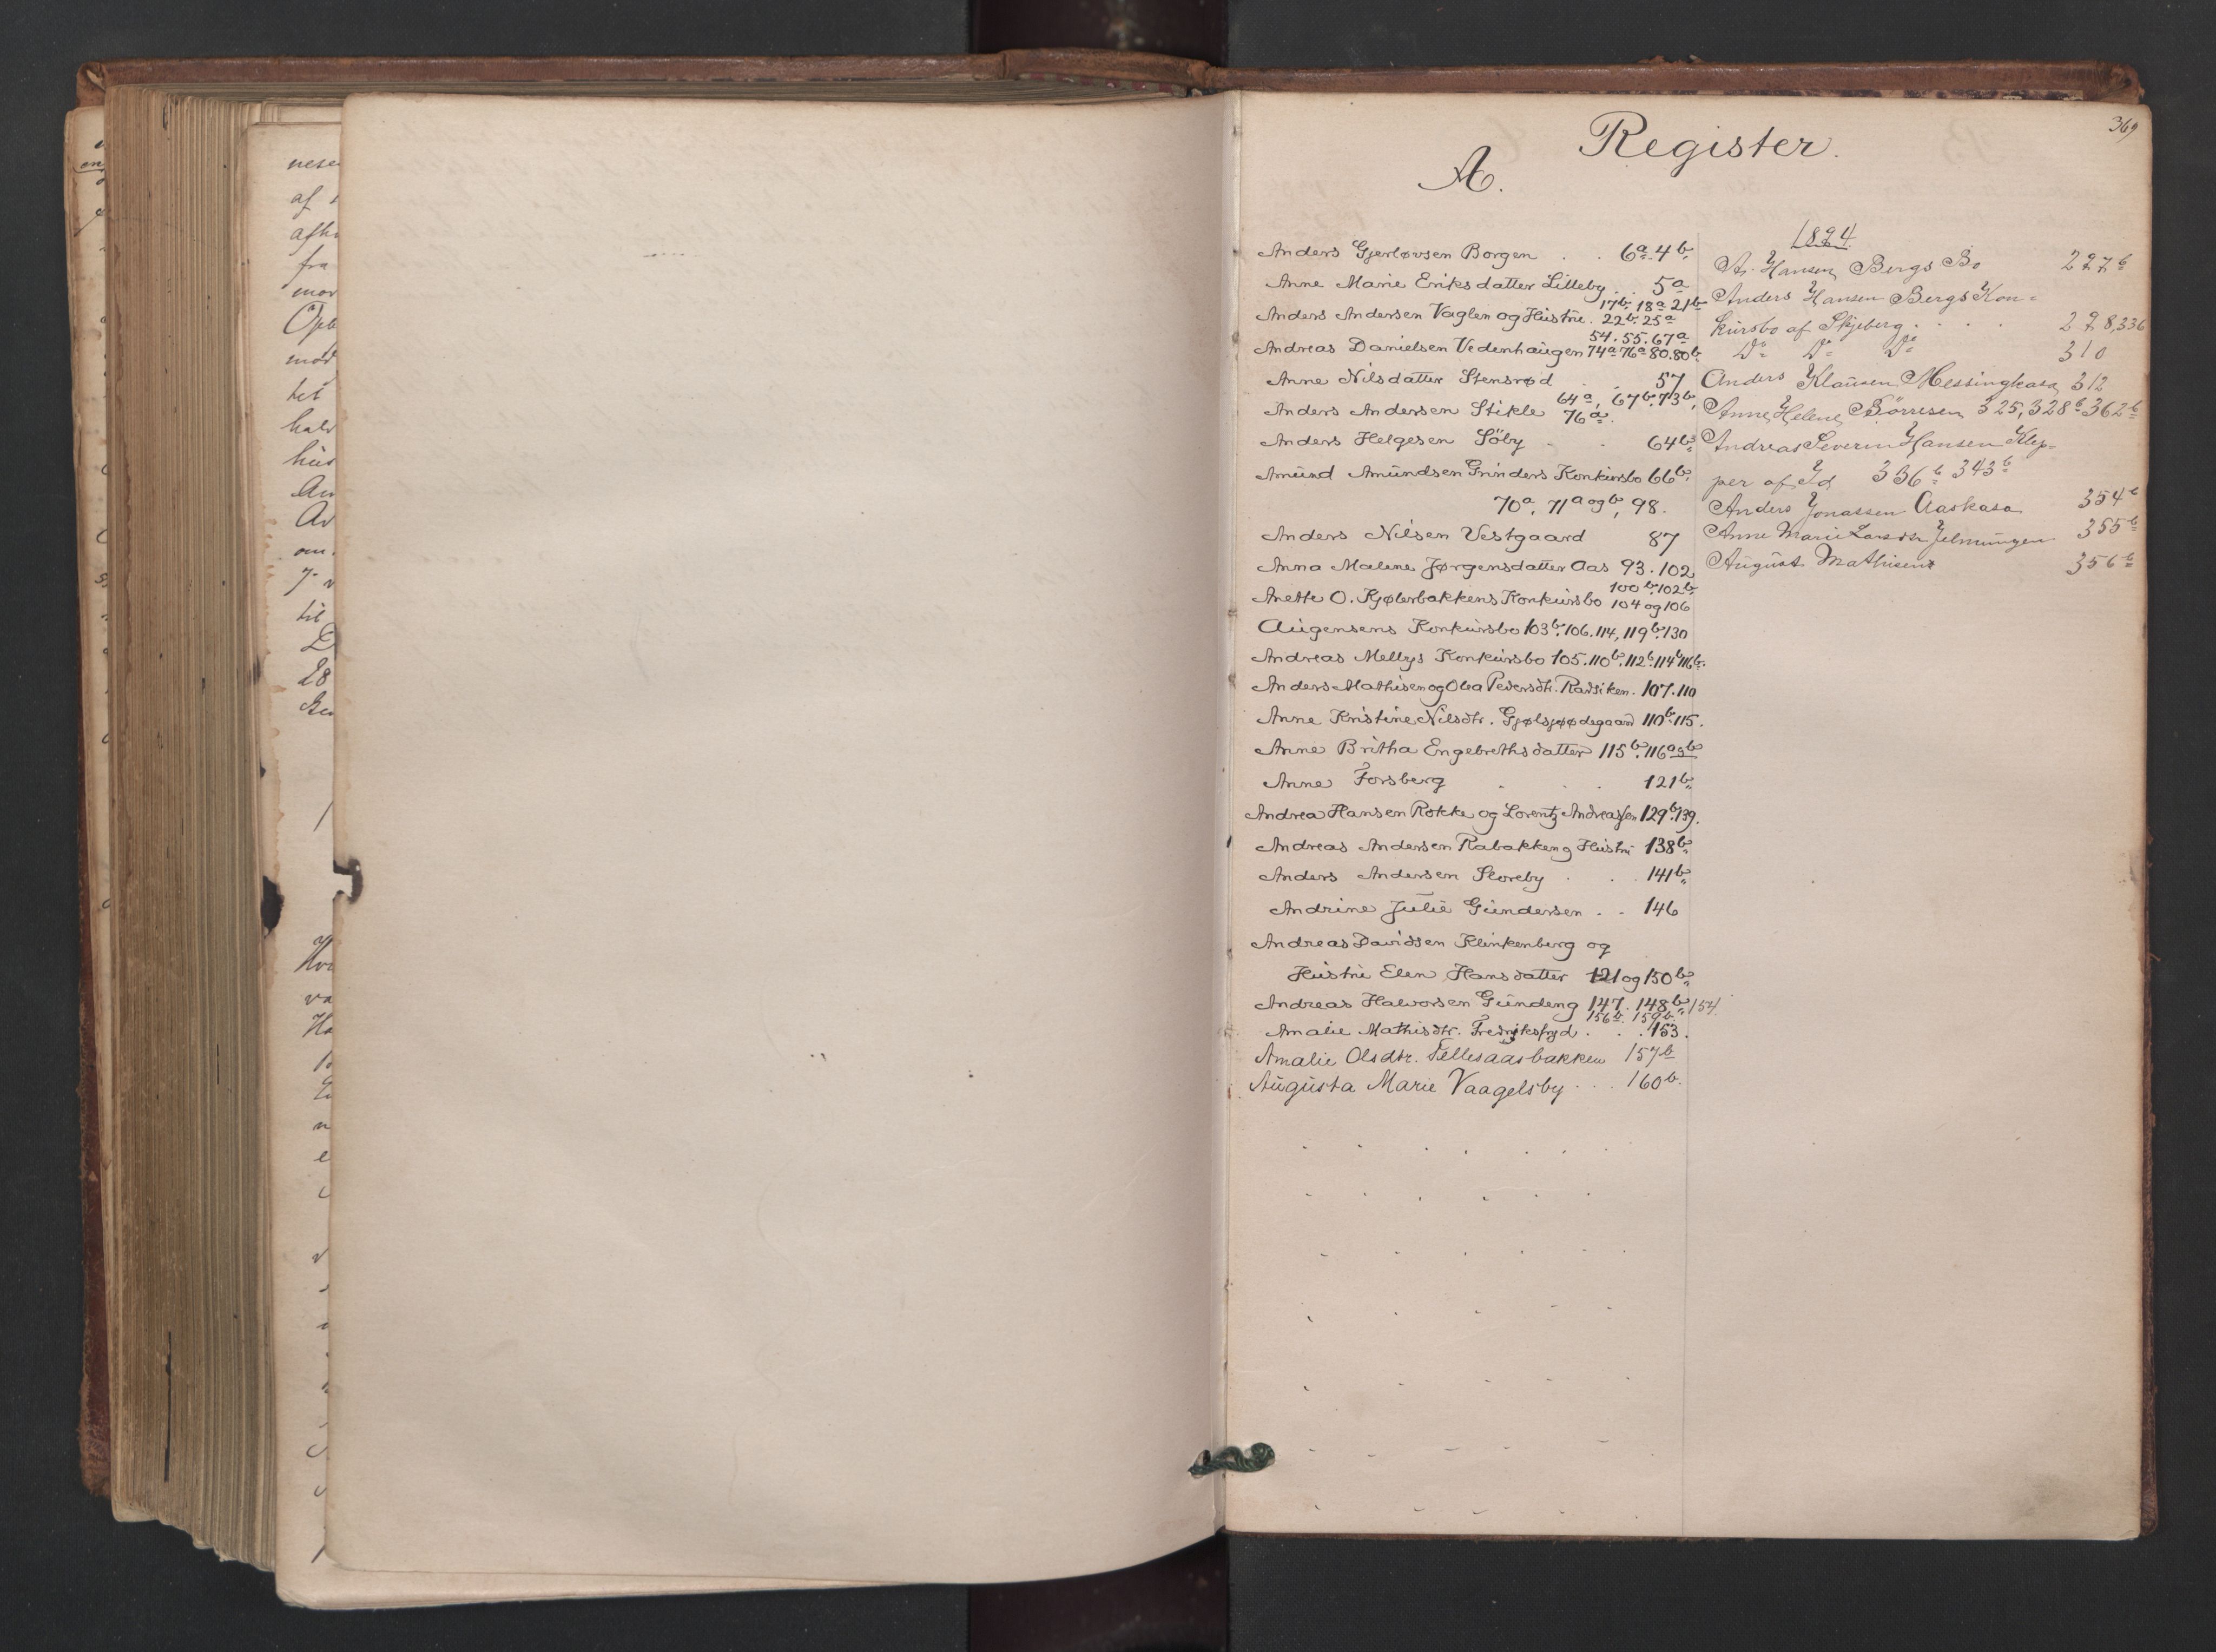 nese
af
afhe
fra
mor
Opb
mod
tet
halv
hus
An
Av
om
7-
til
D
28
Ber
Hvo
va
Ha
369
Register.
A.
Anders Gjerløvsen Borgen . . 6a. 4b.
Anne Marie Eriksdatter Lilleby . . 5a
17b. 18a 21b
Anders Andersen Vaglen og Hustru. 22b. 25a
54. 55. 67a
Andreas Danielsen Vedenhaugen 74a 76a 80. 80b.
Anne Nilsdatter Stensrød . . 57
64a, 67b. 73b,
Anders Andersen Stikle 76a.
Anders Helgesen Söby . . 64b.
Amund Amundsen Grinders Konkursbo 66b.
70a, 71a og b, 98.
Anders Nilsen Vestgaard 87
Anna Malene Jørgensdatter Aas 93. 102
100b. 102b.
Anette O. Kjølerbakkens Konkursbo 104 og 106
Augensens Konkursbo 103b. 106. 114, 119b. 130
Andreas Mellys Konkursbo 105. 110b. 112b. 114b 116b.
Anders Mathisen og Olea Pedersdtr. Radsiken. 107. 110
Anne Kristine Nilsdtr. Gjølsjøødegaard 110b. 115.
Anne Britha Engebrethsdatter 115b. 116a og b
Anne Forsberg . . . 121b.
Andrea Hansen Rokke og Lorentz Andreassen 129b. 139.
Andreas Andersen Rabakken og Hustru 138b.
Anders Andersen Skoreby . . 141b.
Andrine Julie Gundersen . . 146
Andreas Davidsen Klinkenberg og
Hustru Elen Hansdatter 121 og 150b.
Andreas Halvorsen Gundeng 147. 148b. 154.
156b. 159b.
Amalie Mathisdtr. Fredriksfryd . . . 153.
Amalie Olsdtr. Fellesaasbakken 157b
Augusta Marie Vaagelsby . . . 160b.
1894.
A. Hansen Bergs Bo 297b
Anders Hansen Bergs Kon=
kursbo af Skjeberg . . . . 298, 336
Do Do Do 310
Anders Klausen Messingkasa 312
Anne Helene Börresen 325, 328b 362b
Andreas Severin Hansen Klep=
per af Id 336b 343b
Anders Jonassen Aaskasa 354b
Anne Marie Larsdtr 355b
August Mathisen 356b